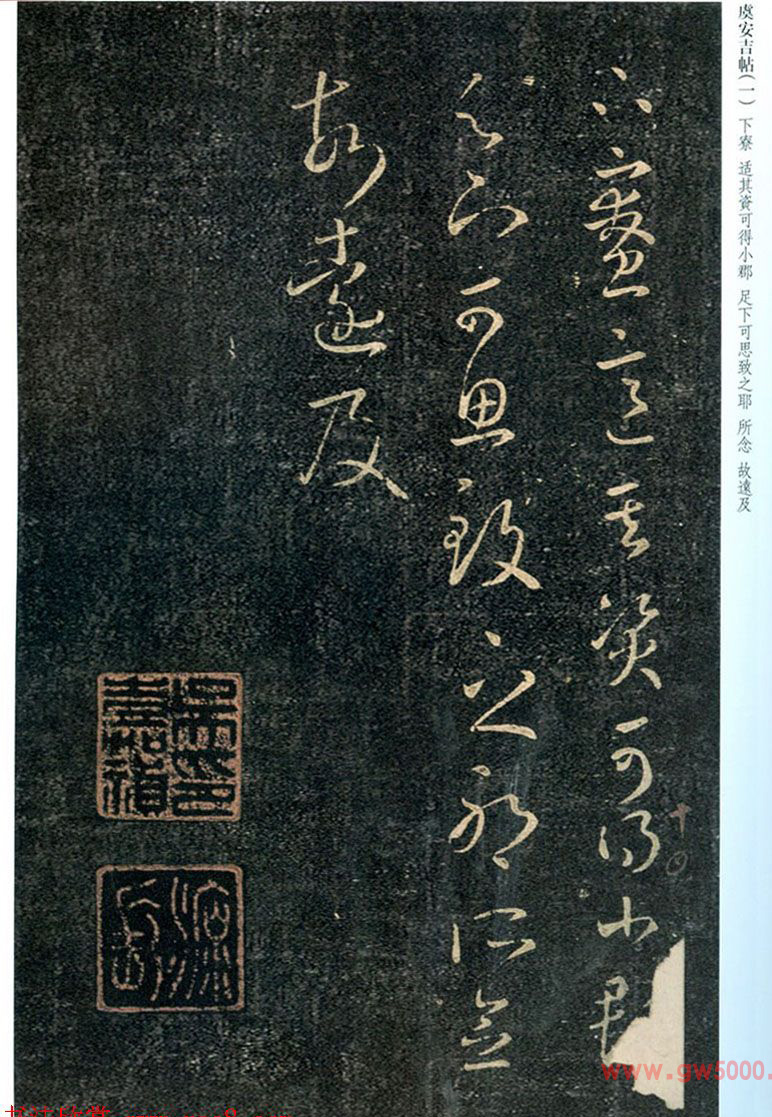 虞安吉帖(一) 下寮 适其資可得小郡 足下可思致之耶 所念 故遠及
下寮适其資可得小郡
足下可思致之耶所念
故遠及
十〇
www.gw5000.